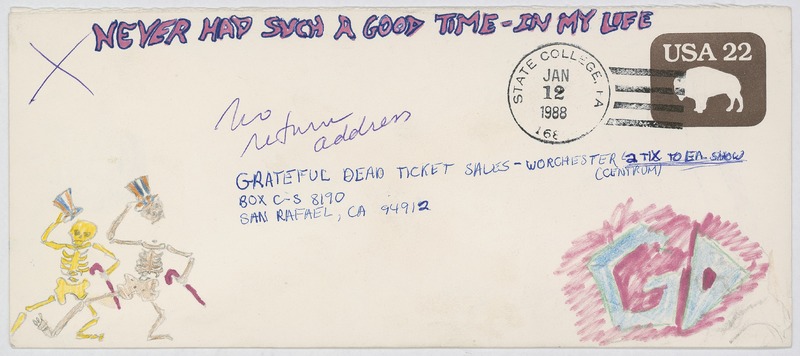 NEVER HAD SUCH A GOOD TIME - IN MY LIFE
USA 22
STATE COLLEGE, PA
JAN
12
1988
168
X
No
return
address
GRATEFUL DEAD TICKET SALES - WORCHESTER (2 TIX TO EA. SHOW
(CENTRUM)
BOX C-S 8190
SAN RAFAEL, CA 94912
GD